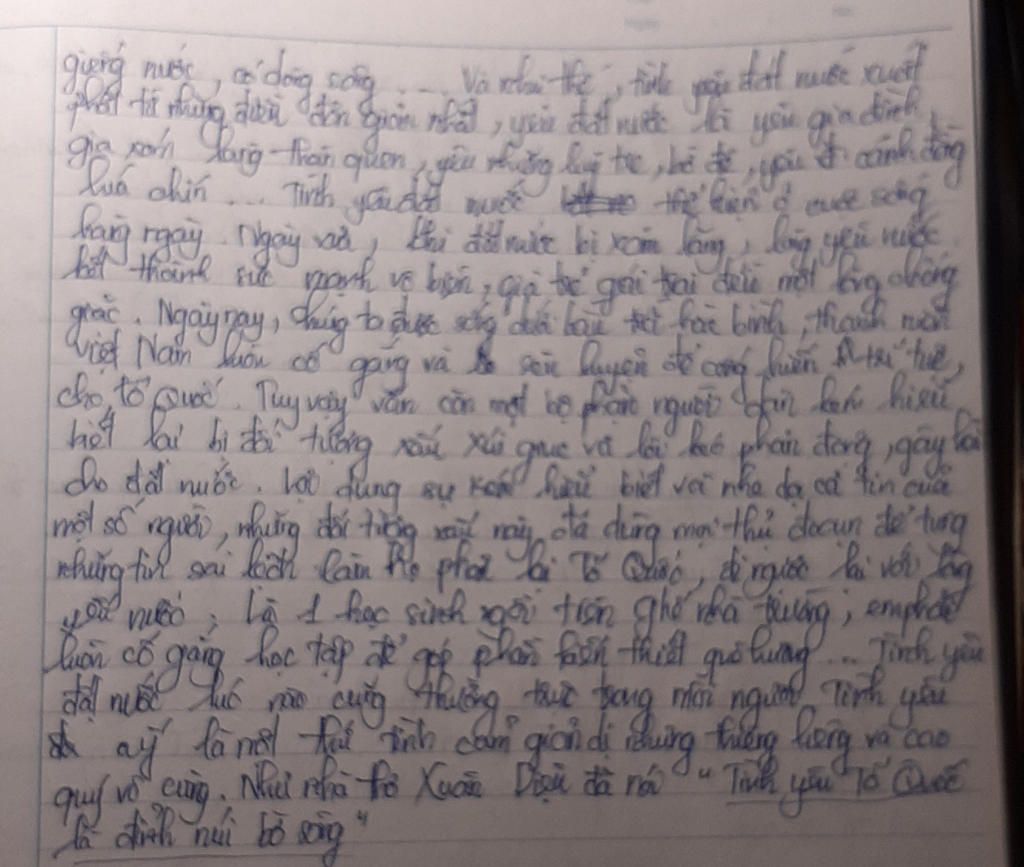 giếng nước, có dòng sông .... Và như thế, tình yêu đất nước xuất
phát từ những điều đơn giản nhất, yêu đất nước là yêu gia đình,
gia xóm làng thân quen, yêu những luỹ tre, bờ đê, yêu cánh đồng
luá chín ... Tình yêu đất nước thể hiện ở cuộc sống
hàng ngày. Ngày xưa, khi đất nước bị xâm lăng, lòng yêu nước
hoá thành sức mạnh vô biên, già trẻ gái trai đều một lòng chống
giặc. Ngày nay, chúng ta được sống dưới bầu trời hoà bình, thanh niên
Việt Nam luôn cố gắng và rèn luyện để cống hiến trí tuệ,
cho tổ quốc. Tuy vậy vẫn còn một bộ phận người dân kém hiểu
biết lại bị đối tượng xấu xúi giục và lôi kéo phản động, gây hại
cho đất nước. Lợi dụng sự kém hiểu biết và nhẹ dạ cả tin của
một số người, những đối tượng xấu này đã dùng mọi thủ đoạn để tung
những tin sai lệch làm họ phản lại Tổ Quốc, đi ngược lại với lòng
yêu nước. Là 1 học sinh ngồi trên ghế nhà trường, em phải
luôn cố gắng học tập để góp phần kiến thiết quê hương ... Tình yêu
đất nước lúc nào cũng thường trực trong mỗi người. Tình yêu
ấy là một thứ tình cảm giản dị nhưng thiêng liêng và cao
quý vô cùng. Như nhà thơ Xuân Diệu đã nói "Tình yêu Tổ Quốc
là đỉnh núi bờ sông"